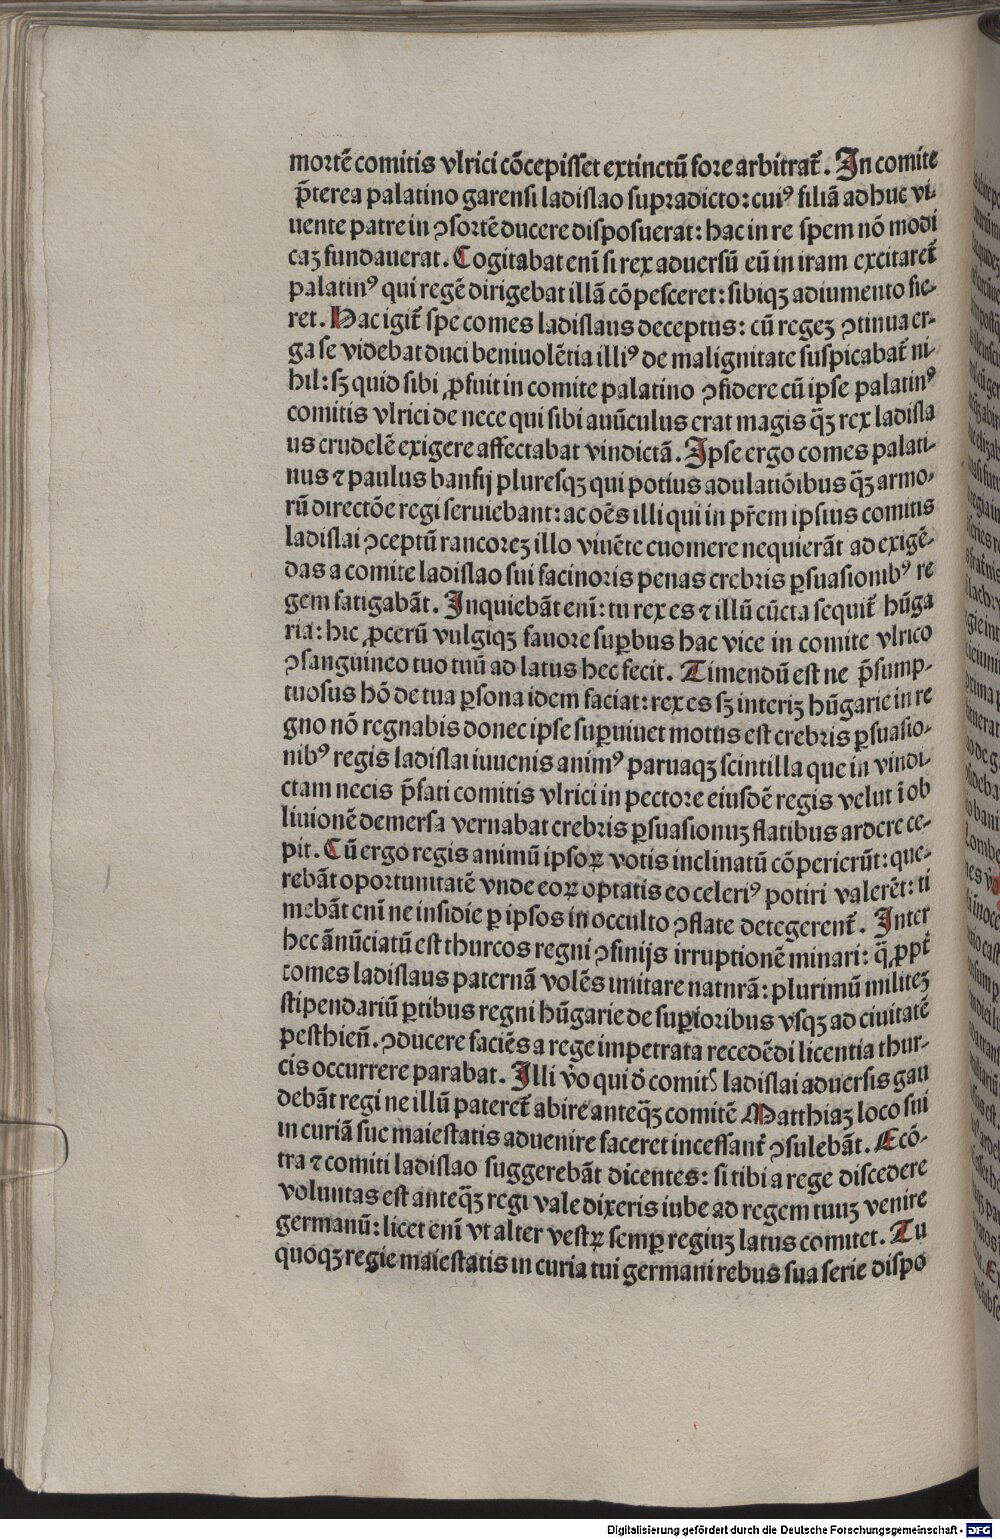 mortē comitis vlrici cōcepisset extinctū fore arbitrat᷑. In comite
p̄terea palatino garensi ladislao supradicto: cuiꝰ filiā adhuc vi⸗
uente patre in ꝯsortē ducere disposuerat: hac in re spem nō modi
caꝫ fundauerat. Cogitabat eni᷑ si rex aduersū eū in iram excitaret᷑
palatinꝰ qui regē dirigebat illā cōpesceret: sibiqꝫ adiumento fie⸗
ret. Hac igit᷑ spe comes ladislaus deceptus: cū regeꝫ ꝯtinua er⸗
ga se videbat duci beniuolētia illiꝰ de malignitate suspicabat᷑ ni⸗
hil: sꝫ quid sibi ꝓfuit in comite palatino ꝯfidere cū ipse palatinꝰ
comitis vlrici de nece qui sibi auūculus erat magis q̄ꝫ rex ladisla
us crudelē exigere affectabat vindictā. Ipse ergo comes palati⸗
nus ⁊ paulus banfij pluresqꝫ qui potius adulatiōibus q̄ꝫ armo⸗
rū directōe regi seruiebant: ac oēs illi qui in pr̄em ipsius comitis
ladislai ꝯceptū rancoreꝫ illo viuēte euomere nequierāt ad exigē⸗
das a comite ladislao sui facinoris penas crebris ꝑsuasionibꝰ re
gem fatigabāt. Inquiebāt enī: tu rex es ⁊ illū cūcta sequit᷑ hūga
ria: hic ꝓcerū vulgiqꝫ fauore suꝑbus hac vice in comite vlrico
ꝯsanguineo tuo tuū ad latus hec fecit. Timendū est ne p̄sump⸗
tuosus hō de tua ꝑsona idem faciat: rex es sꝫ interiꝫ hūgarie in re
gno nō regnabis donec ipse suꝑuiuet motus est crebris ꝑsuasio⸗
nibꝰ regis ladislai iuuenis animꝰ paruaqꝫ scintilla que in vindi⸗
ctam necis p̄fati comitis vlrici in pectore eiusdē regis velut ī ob
liuionē demersa vernabat crebris ꝑsuasionuꝫ flatibus ardere ce⸗
pit. Cū ergo regis animū ipsoꝝ votis inclinatū cōpericrūt: que⸗
rebāt oportunitatē vnde eoꝝ optatis eo celeriꝰ potiri valerēt: ti
mebāt enī ne insidie ꝑ ipsos in occulto ꝯflate detegerent᷑. Inter
hec ānūciatū est thurcos regni ꝯfinijs irruptionē minari: q̄ ꝓpt᷑
comes ladislaus paternā volēs imitare naturā: plurimū militeꝫ
stipendariū ꝑtibus regni hūgarie de suꝑioribus vsqꝫ ad ciuitatē
pesthien̄. ꝯducere faciēs a rege impetrata recedēdi licentia thur⸗
cis occurrere parabat. Illi v̓o qui d̓ comitꝭ ladislai aduersis gau
debāt regi ne illū pateret᷑ abire anteq̄ꝫ comitē Matthiaꝫ loco sui
in curiā sue maiestatis aduenire faceret incessant᷑ ꝯsulebāt. Ecō⸗
tra ⁊ comiti ladislao suggerebāt dicentes: si tibi a rege discedere
voluntas est anteq̄ꝫ regi vale dixeris iube ad regem tuuꝫ venire
germanū: licet enī vt alter vestꝝ semꝑ regiuꝫ latus comitet. Tu
quoqꝫ regie maiestatis in curia tui germani rebus sua serie dispo
Digitalisierung gefördert durch die Deutsche Forschungsgemeinschaft - DFG